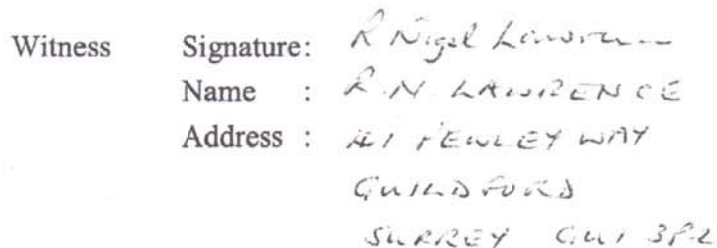 Witness Signature: R Nigel Lawrence
Name : R. N. LAWRENCE
Address : 41 PEWLEY WAY
GUILDFORD
SURREY GU1 3PZ